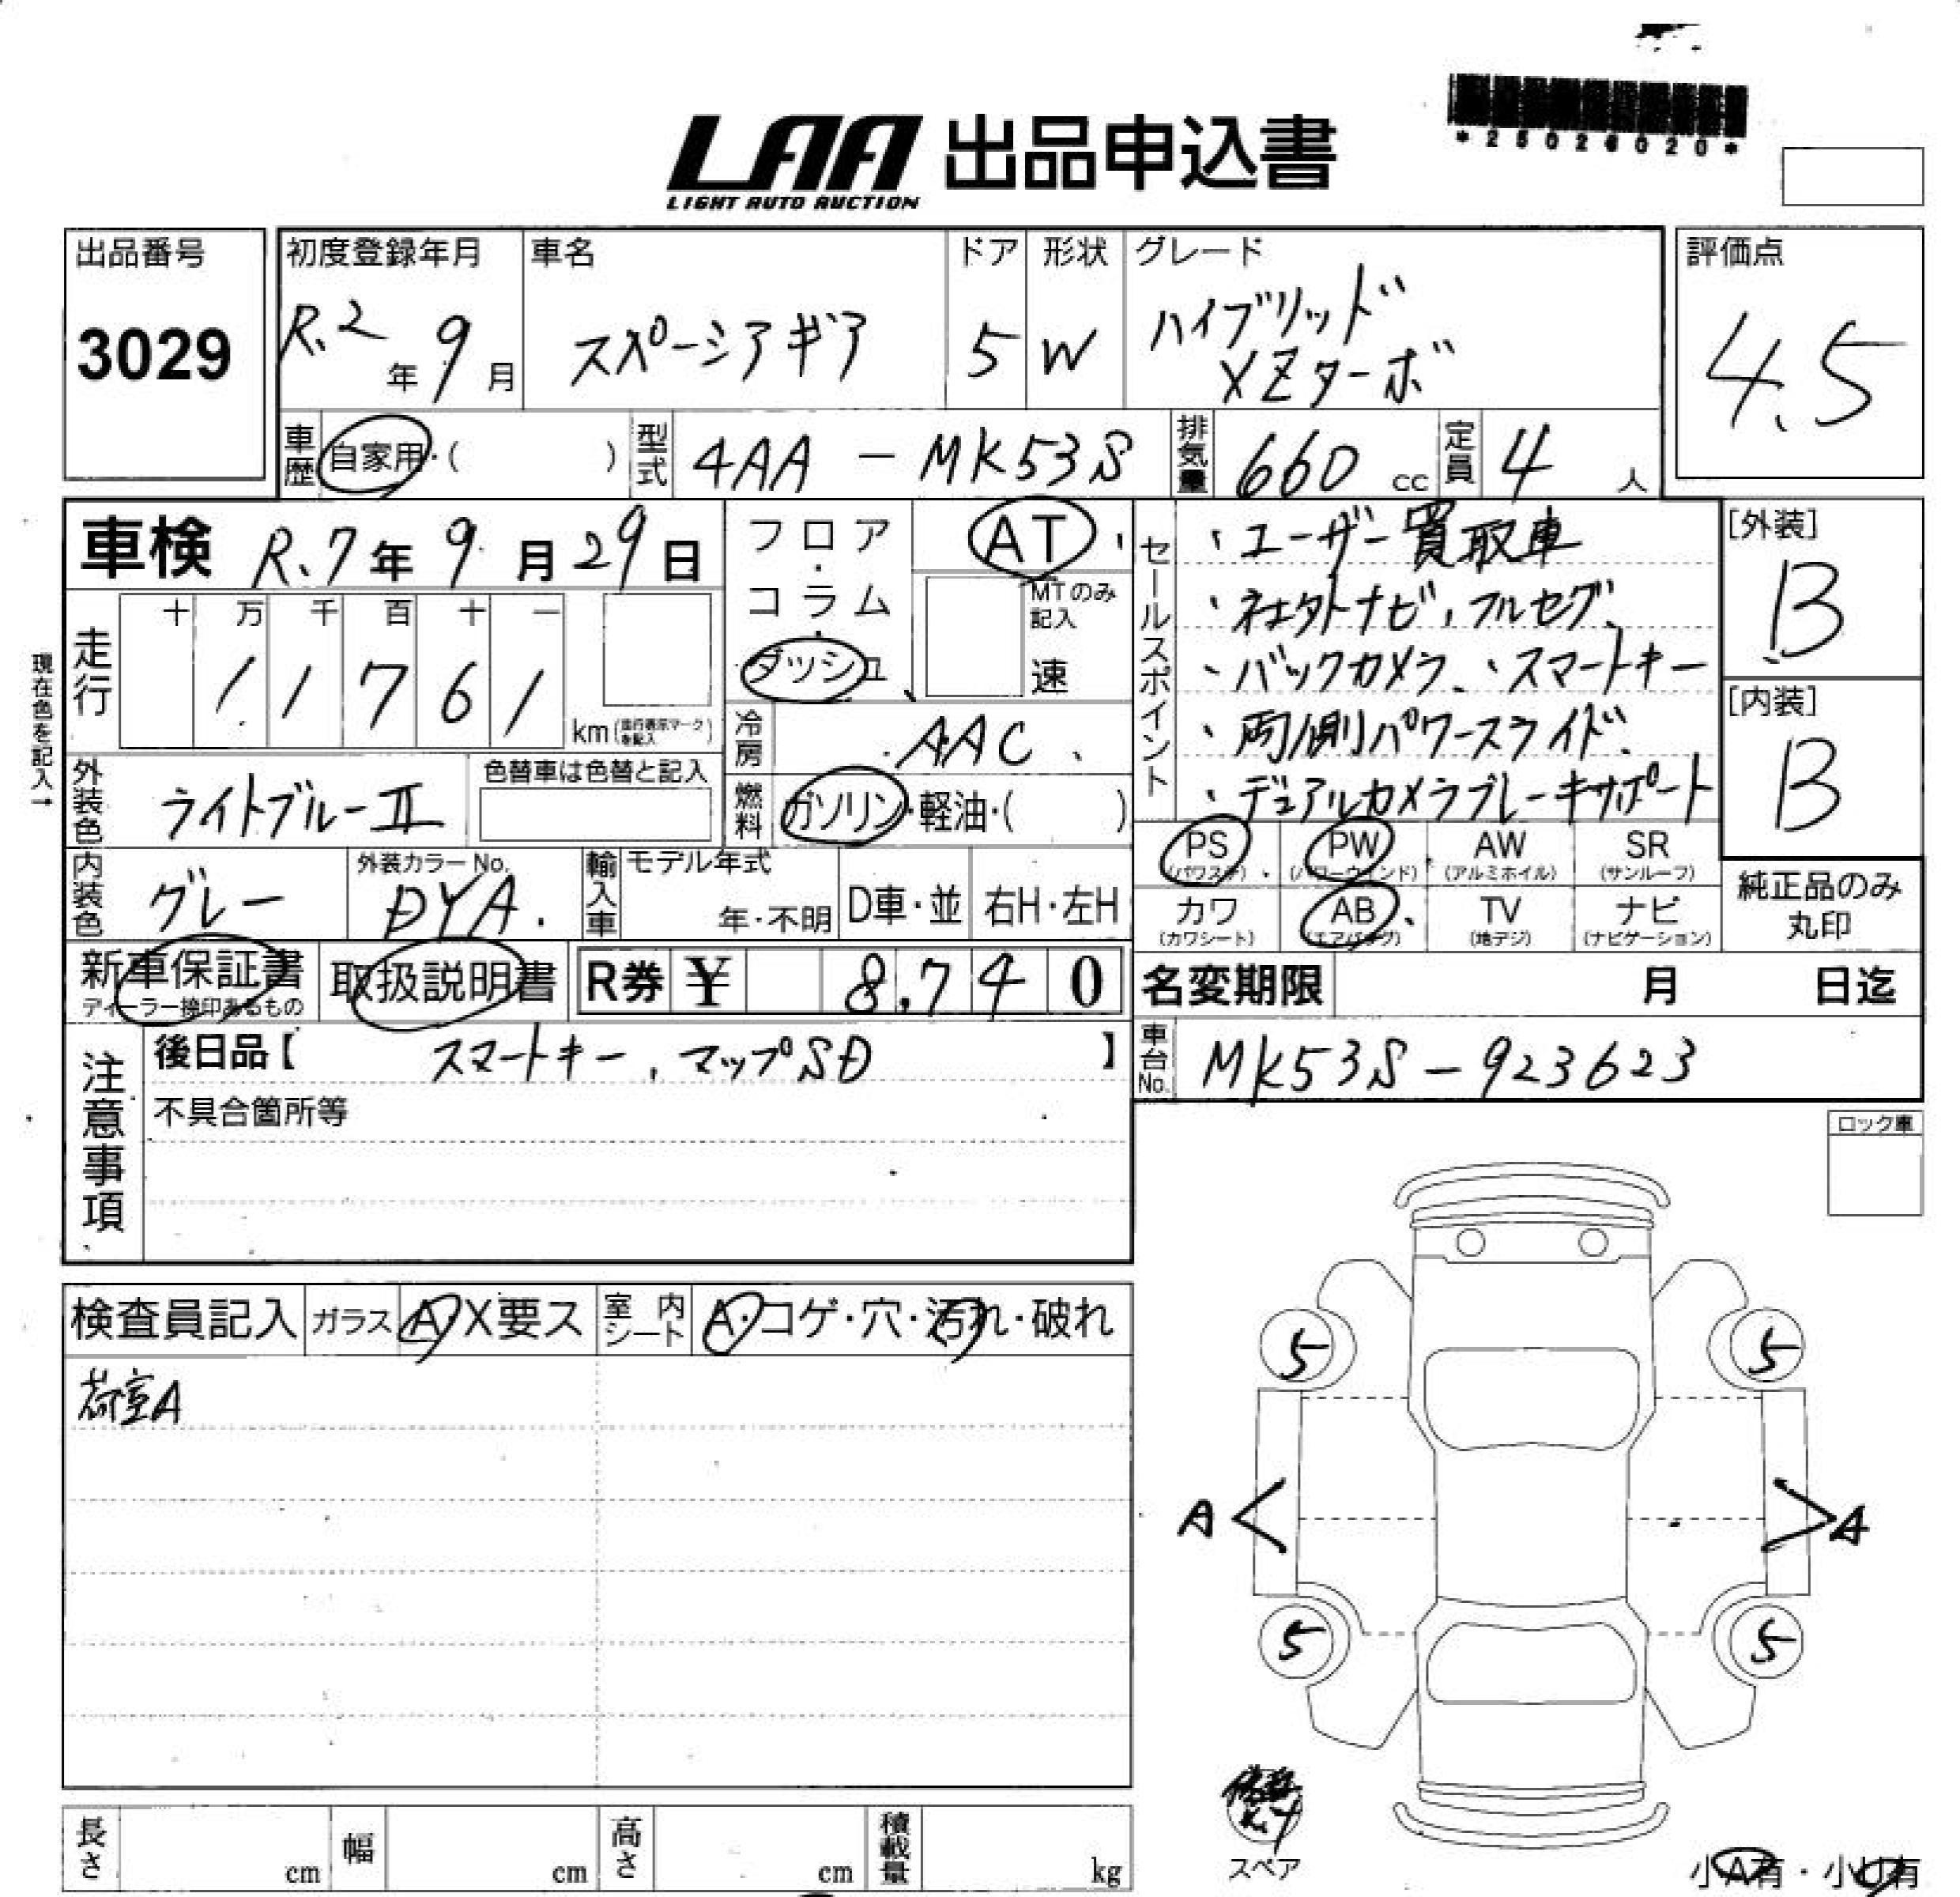 *25026020*
LAA 出品申込書
LIGHT AUTO AUCTION
出品番号
3029
初度登録年月
R.2年9月
車名
スペーシアギア
ドア
5
形状
W
グレード
ハイブリッド
XZターボ
評価点
4.5
車歴
自家用・( )
型式
4AA-MK53S
排気量
660cc
定員
4人
車検 R.7年9月29日
現在色を記入→
走行
十 万 千 百 十 一
1 1 7 6 1
km(走行表示マークを記入)
フロア・
コラム・
ダッシュ
AT
MTのみ記入
速
冷房
AAC
燃料
ガソリン・軽油・( )
セールスポイント
・ユーザー買取車
・社外ナビ、フルセグ、
・バックカメラ、・スマートキー
・両側パワースライド、
・デュアルカメラブレーキサポート
[外装]
B
[内装]
B
外装色
ライトブルーII
色替車は色替と記入
内装色
グレー
外装カラーNo.
DYA
輸入車
モデル年式
年・不明
D車・並
右H・左H
PS
(パワステ)
PW
(パワーウインド)
AW
(アルミホイル)
SR
(サンルーフ)
カワ
(カワシート)
AB
(エアバッグ)
TV
(地デジ)
ナビ
(ナビゲーション)
純正品のみ
丸印
新車保証書
ディーラー捺印あるもの
取扱説明書
R券 ¥ 8,740
名変期限 月 日迄
注意事項
後日品【 スマートキー、マップSD 】
不具合箇所等
車台No.
MK53S-923623
ロック車
検査員記入
ガラス
A X要ス
室内シート
A・コゲ・穴・汚れ・破れ
荷室A
5
5
A
A
5
5
スペア
小A有・小U有
長さ cm
幅 cm
高さ cm
積載量 kg